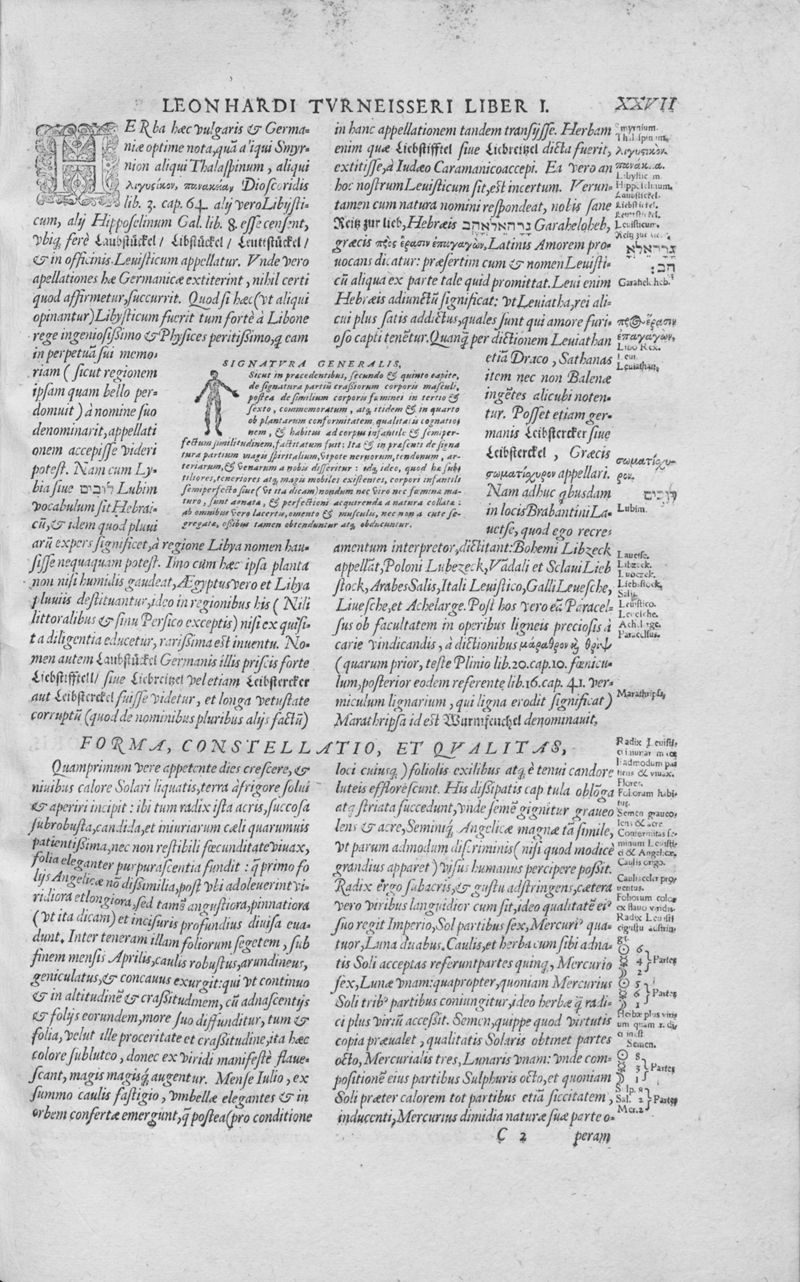 LEONHARDI TVRNEISSERI LIBER I. XXVII
HERba hæc vulgaris & Germa-
niæ optime nota, quã aliqui Smyr-
nion aliqui Thalaspinum, aliqui
λιγυσικόν, πανακέια, Dioscoridis
lib. 3. cap. 64. alij vero Libysti-
cum, alij Hipposelinum Gal. lib. 8. esse censent,
vbiq; ferè Laubstückel / Libstückel / Leutstückel /
& in officinis Leuisticum appellatur. Vnde vero
apellationes hæ Germanicæ extiterint, nihil certi
quod affirmetur, succurrit. Quod si hæc (vt aliqui
opinantur) Libysticum fuerit tum fortè à Libone
rege ingeniosissimo & Physices peritissimo, q cam
in perpetuã sui memo-
riam (sicut regionem
ipsam quam bello per-
domuit) à nomine suo
denominarit, appellati
onem accepisse videri
potest. Nam cum Ly-
bia siue לובים Lubim
vocabulum sit Hebrai-
cũ, & idem quod pluui
arũ expers significet, à regione Libya nomen hau-
sisse nequaquam potest. Imo cùm hæc planta
non nisi humidis gaudeat, Ægyptus vero et Libya
pluuiis destituantur, ideo in regionibus his (Nili
littoralibus & sinu Persico exceptis) nisi ex quisi-
ta diligentia educetur, rarissima est inuentu. No-
men autem Laubstückel Germanis illis priscis forte
Liebstifftell / siue Liebreitzel vel etiam Liebstercker
aut Leibsterckel fuisse videtur, et longa vetustate
corruptũ (quod de nominibus pluribus alijs factũ)
SIGNATVRA GENERALIS,
Sicut in præcedentibus, secundo & quinto capite,
de signatura partiũ crassiorum corporis masculi,
postea de similium corporis fæminei in tertio &
sexto, commemoratum, atq; itidem & in quarto
ob plantarum conformitatem, qualitatis cognatio
nem, & habitus ad corpus infantile & semiper-
fectum similitudinem, factitatum fuit: Ita & in præsenti de signa
tura partium magis spiritalium, vtpote neruorum, tendonum, ar-
teriarum, & venarum a nobis disseritur: idq; ideo, quod hæ sub-
tiliores, teneriores atq; magis mobiles existentes, corpori infantili
semiperfecto siue (vt ita dicam) nondum nec viro nec fæminæ ma-
turo, sunt arnata, & perfectioni acquirenda a natura collata:
ab omnibus vero lacertis, omento & musculis, nec non a cute se-
gregata, ossibus tamen obtenduntur atq; obducuntur.
in hanc appellationem tandem transisse. Herbam
enim quæ Liebstiffel siue Liebreitzel dicta fuerit,
extitisse, à Iudæo Caramanico accepi. Ea vero an
hoc nostrum Leuisticum sit, est incertum. Verun-
tamen cum natura nomini respondeat, nobis sane
Reitz zur lieb, Hebræis גרהאלאהב Garaheloheb,
græcis πρὸς ἔρασιν ἐπαγαγῶν, Latinis Amorem pro-
uocans dicatur: præsertim cum & nomen Leuisti-
cũ aliqua ex parte tale quid promittat. Leui enim
Hebræis adiunctũ significat: vt Leuiatha, rei ali-
cui plus satis addictus, quales sunt qui amore furi-
oso capti tenẽtur. Quanq; per dictionem Leuiathan
etiã Draco, Sathanas
item nec non Balenæ
ingẽtes alicubi noten-
tur. Posset etiam ger-
manis Leibstercker siue
Leibsterckel, Græcis
σωματίοχυρον appellari.
Nam adhuc qbusdam
in locis Brabantini La-
uetse, quod ego recre
amentum interpretor, dictitant: Bohemi Libzeck
appellãt, Poloni Lubezeck, Vãdali et Sclaui Lieb
stock, Arabes Salis, Itali Leuistico, Galli Leuesche,
Liuesche, et Achelarge. Post hos vero eũ Paracel-
sus ob facultatem in operibus ligneis preciosis à
carie vindicandis, à dictionibus μάραθρον κỳ θρὶψ
(quarum prior, teste Plinio lib. 20. cap. 10. fœnicu-
lum, posterior eodem referente lib. 16. cap. 41. ver-
miculum lignarium, qui ligna erodit significat)
Marathripsa id est Wurmfenchel denominauit,
Smyrnium.
Thalaspinum,
λιγυσικόν.
πανακέια.
Libysticum.
Hipposelinum,
Laubstickel.
Liebstickel.
Leutstickel.
Leuisticum.
Reitz zur lieb.
גרהאלא
הב:
Garaheloheb.
πρὸς ἔρασιν
ἐπαγαγῶν.
Libo Rex.
Leui.
Leuiathan.
σωματίοχυ-
ρον.
לובים
Lubim.
Lauetse.
Libzeck.
Lubezeck.
Liebstock,
Salis.
Leuistico.
Leuesche.
Achelarge.
Paracelsus.
Marathripsa,
FORMA, CONSTELLATIO, ET QVALITAS,
Quamprimum vere appetente dies crescere, &
niuibus calore Solari liquatis, terra à frigore solui
& aperiri incipit: ibi tum radix ista acris, succosa
subrobusta, candida, et iniuriarum cæli quarumuis
patientissima, nec non restibili fœcunditate viuax,
folia eleganter purpurascentia fundit: q primo fo
lijs Angelicæ nõ dissimilia, post vbi adoleuerint vi-
ridiora et longiora, sed tamẽ angustiora, pinnatiora
(vt ita dicam) et incisuris profundius diuisa eua-
dunt. Inter teneram illam foliorum segetem, sub
finem mensis Aprilis, caulis robustus, arundineus,
geniculatus, & concauus exurgit: qui vt continuo
& in altitudinẽ & crassitudnem, cũ adnascentijs
& folijs eorundem, more suo diffunditur, tum &
folia, velut ille proceritate et crassitudine, ita hæc
colore subluteo, donec ex viridi manifestè flaue-
scant, magis magisq; augentur. Mense Iulio, ex
summo caulis fastigio, vmbellæ elegantes & in
orbem confertæ emergunt, q postea (pro conditione
loci cuiusq;) foliolis exilibus atq; è tenui candore
luteis efflorescunt. His dissipatis capitula oblõga
atq; striata succedunt, vnde semẽ gignitur graueo
lens & acre, Seminiq; Angelicæ magnæ tã simile,
vt parum admodum discriminis (nisi quod modicè
grandius apparet) visus humanus percipere possit.
Radix ergo subacris, & gustu adstringens, cætera
vero viribus languidior cum sit, ideo qualitatẽ ei⁹
suo regit Imperio, Sol partibus sex, Mercuri⁹ qua-
tuor, Luna duabus. Caulis, et herba cum sibi adna-
tis Soli acceptas referunt partes quinq; Mercurio
sex, Lunæ vnam: quapropter, quoniam Mercurius
Soli trib⁹ partibus coniungitur, ideo herbæ q̃ radi-
ci plus viriũ accessit. Semen, quippe quod virtutis
copia præualet, qualitatis Solaris obtinet partes
octo, Mercurialis tres, Lunaris vnam: vnde com-
positionẽ eius partibus Sulphuris octo, et quoniam
Soli præter calorem tot partibus etiã siccitatem,
inducenti, Mercurius dimidia naturæ suæ parte o-
Radix Leuisti,
Flores.
Foliorum habi-
tus.
Semen graueo,
lens & acre
Conuenientia se-
minum Leuisti-
ci & Angelicæ,
Caulis ortgo.
Foliorum color
ex flauo viridis.
Radix Leuisti
☉ 6
☿ 4 Partes
☽ 2
☉ 5
☿ 6 Partes
☽ 1
Herbæ plus viri-
um quam radi,
ci inest.
Semen.
☉ 8
☿ 3 Partes
☽ 1
Sulp. 8
Sal. 2 Partes
Mer. 2
C 2 peram